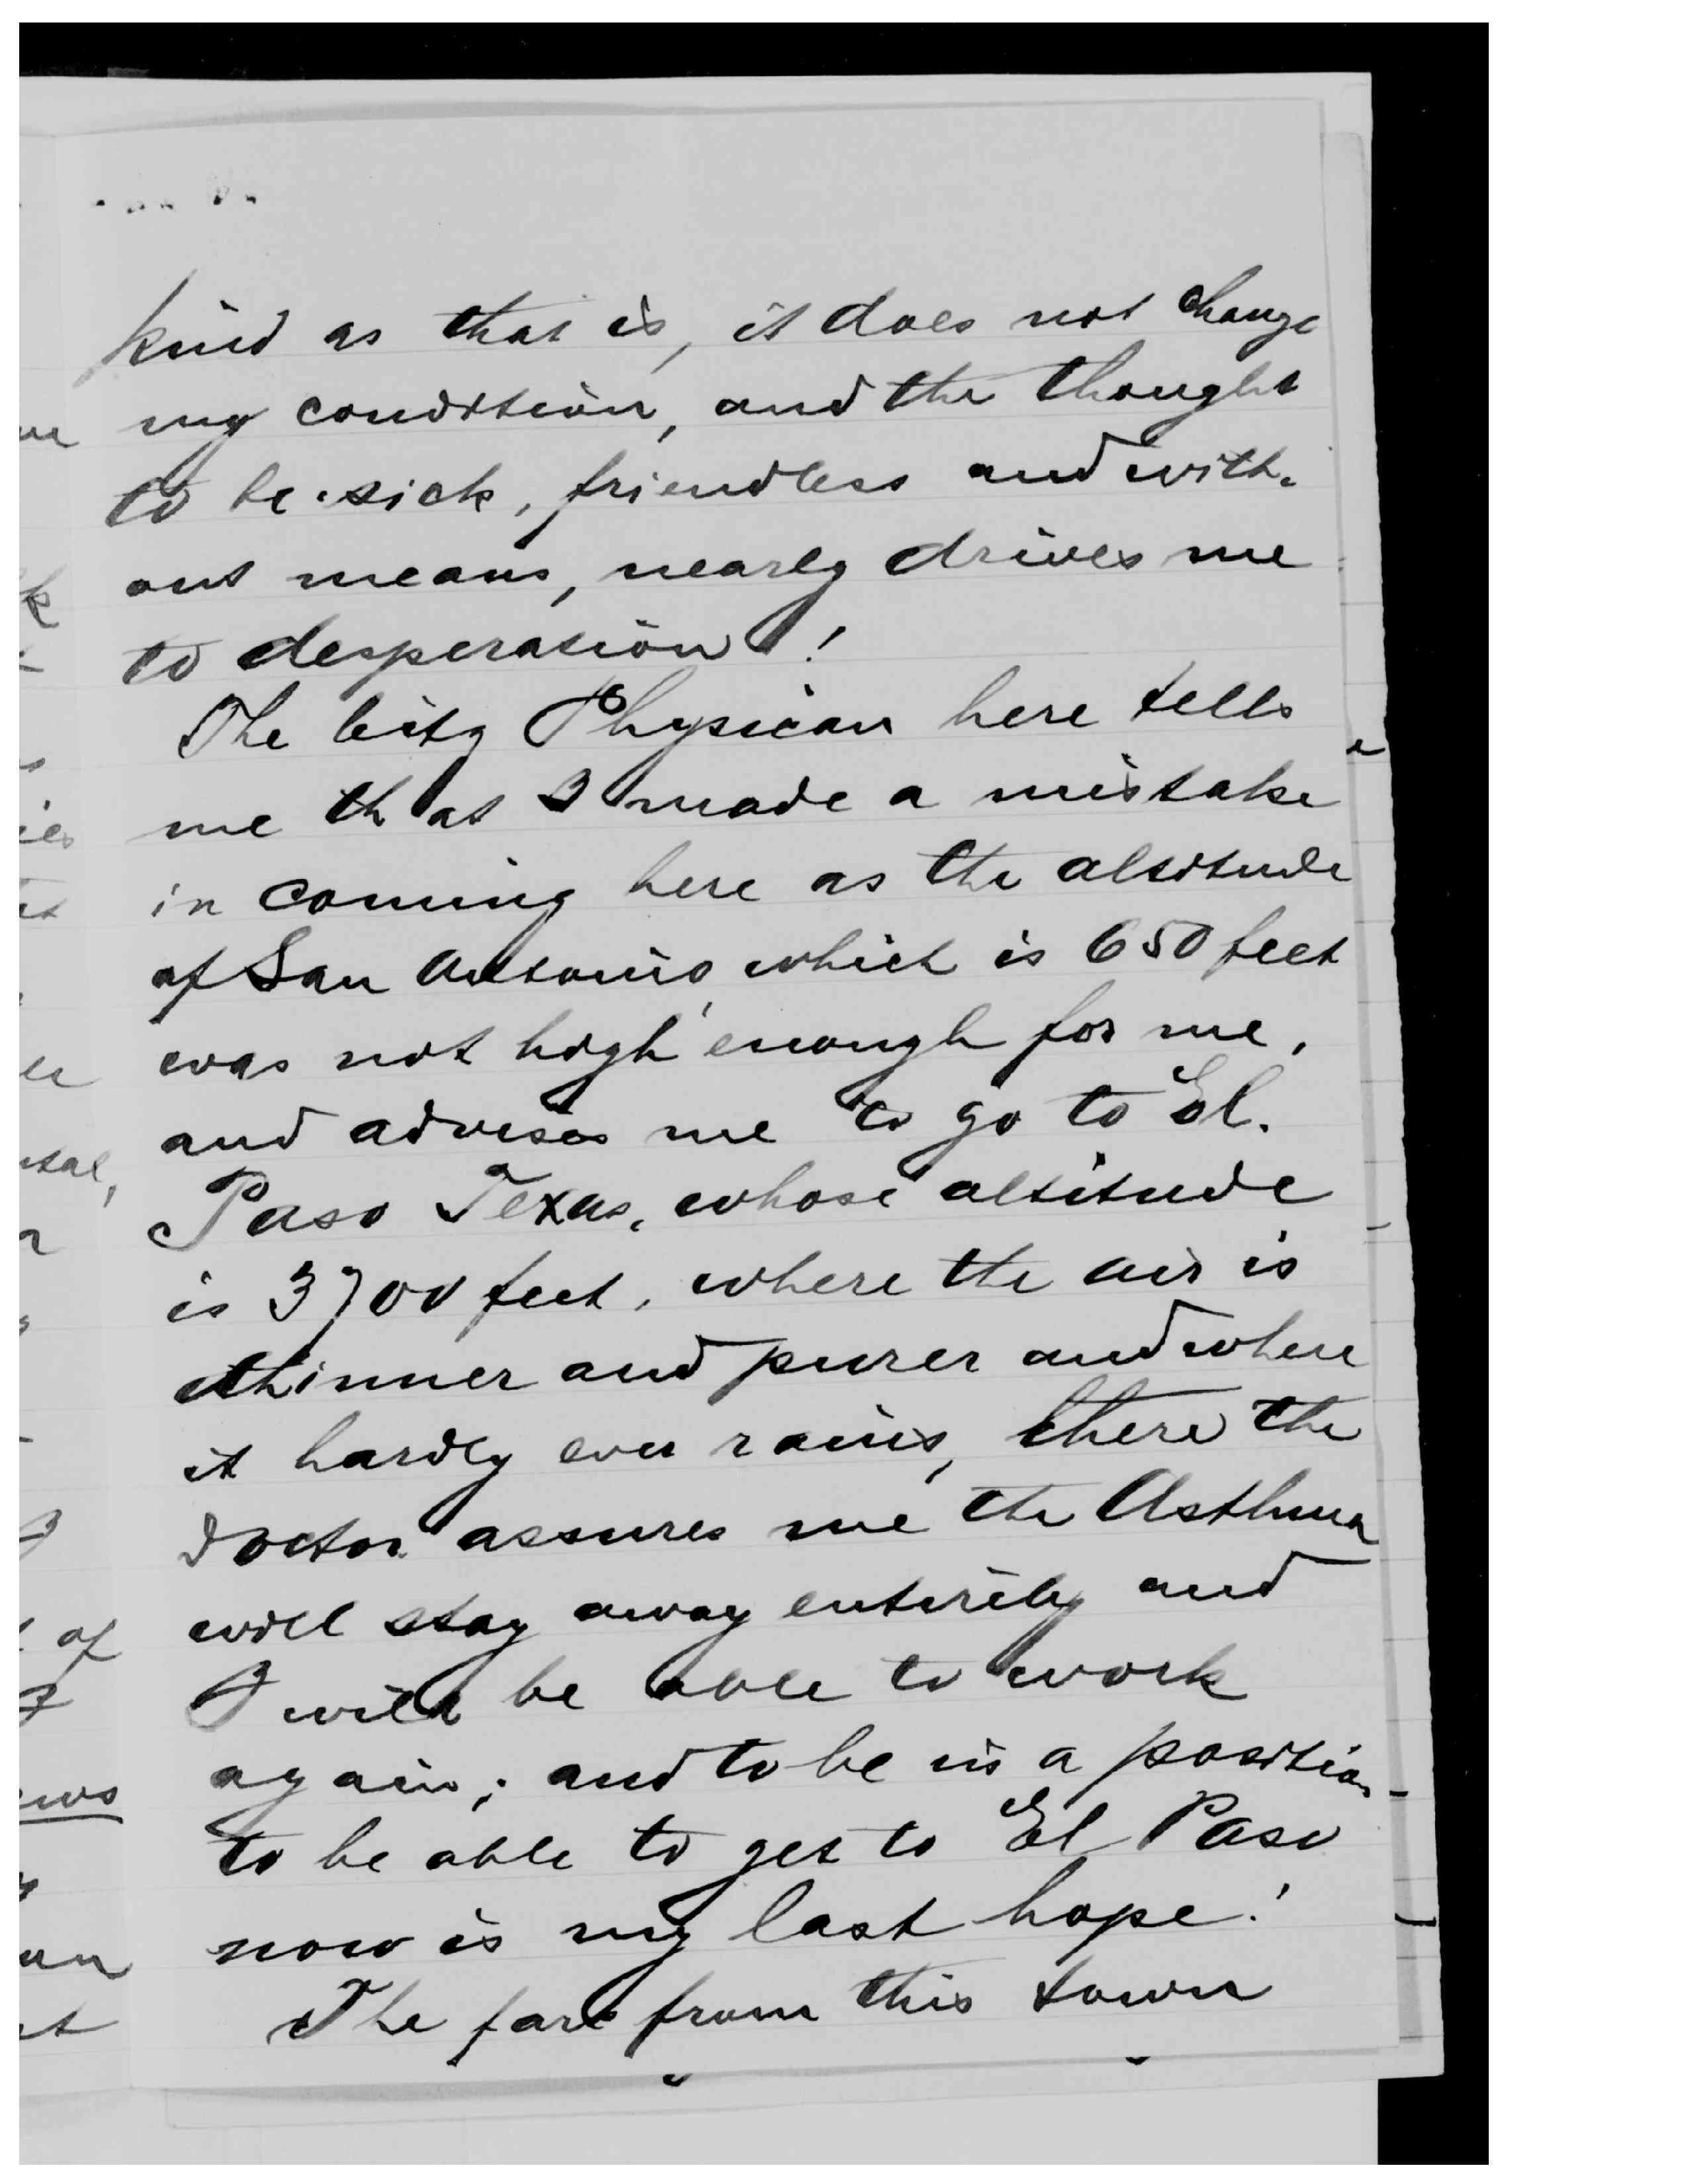 kind as that is, it does not change
my condition, and the thought
to be sick, friendless and with-
out means, nearly drives me
to desperation!
The City Physician here tells
me that I made a mistake
in coming here as the altitude
of San Antonio, which is 650 feet
was not high enough for me,
and advises me to go to El.
Paso Texas, whose altitude
is 3700 feet, where the air is
thinner and purer and where
it hardly ever rains, there the
Doctor assures me the Asthma
will stay away entirely and
I will be able to work
again; and to be in a position
to be able to get to El Paso
now is my last hope!
The fare from this town